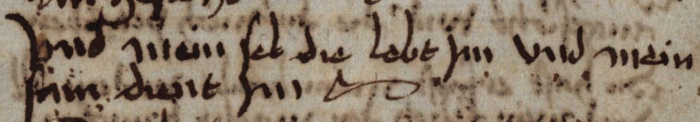 vnd mein sel die lebt jm vnd mein
sam dient jm